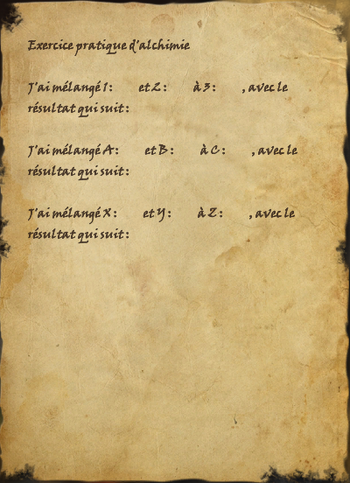 Exercice pratique d'alchimie
J'ai mélangé 1: et 2: à 3: , avec le
résultat qui suit:
J'ai mélangé A: et B: à C: , avec le
résultat qui suit:
J'ai mélangé X: et Y: à Z: , avec le
résultat qui suit: